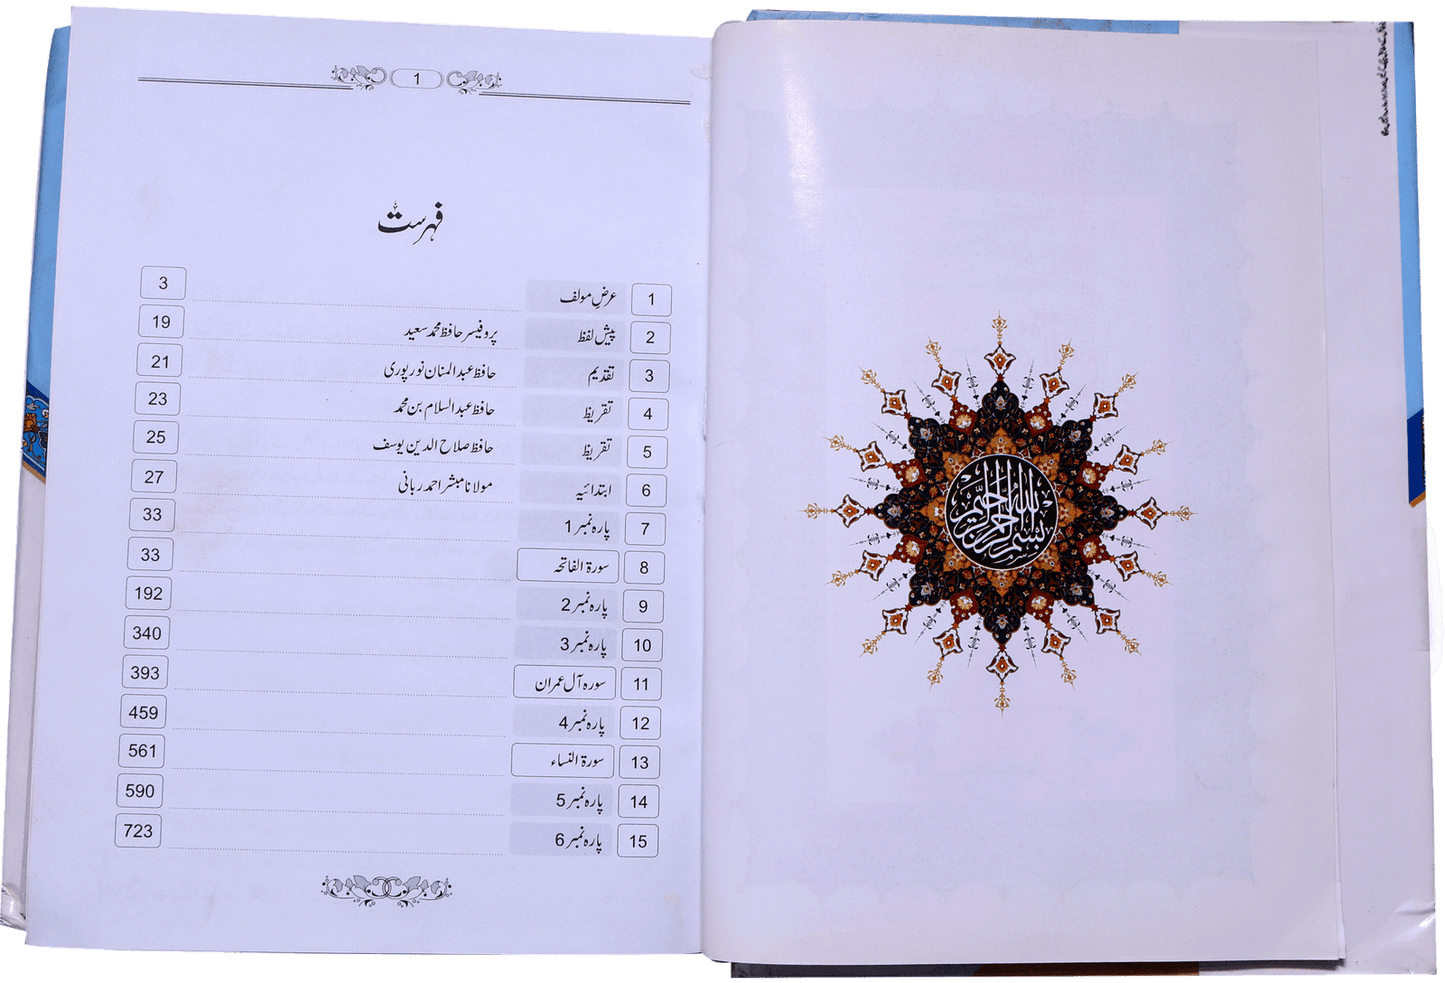 بسم الله الرحمن الرحيم
1
فہرست
1 عرض مولف 3
2 پیش لفظ پروفیسر حافظ محمد سعید 19
3 تقدیم حافظ عبدالمنان نورپوری 21
4 تقریظ حافظ عبدالسلام بن محمد 23
5 تقریظ حافظ صلاح الدین یوسف 25
6 ابتدائیہ مولانا مبشر احمد ربانی 27
7 پارہ نمبر 1 33
8 سورۃ الفاتحہ 33
9 پارہ نمبر 2 192
10 پارہ نمبر 3 340
11 سورہ آل عمران 393
12 پارہ نمبر 4 459
13 سورۃ النساء 561
14 پارہ نمبر 5 590
15 پارہ نمبر 6 723